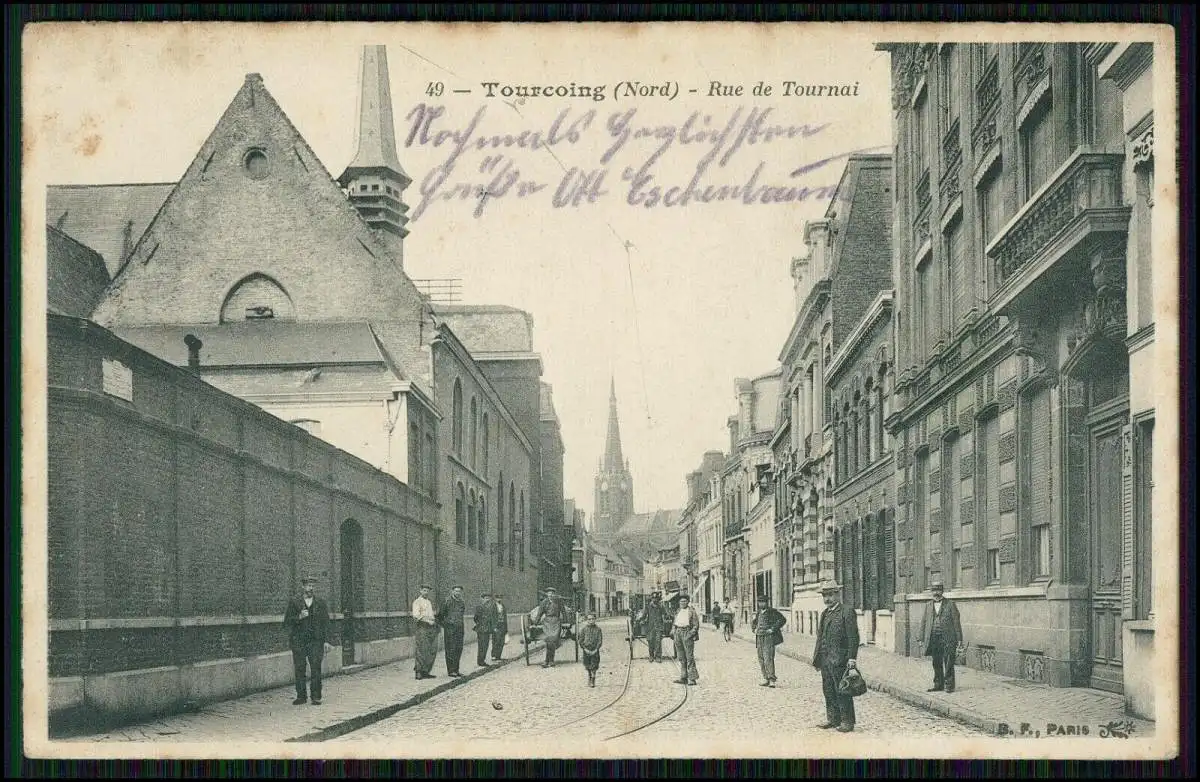 49 — Tourcoing (Nord) - Rue de Tournai
Nochmals Herzlichsten
Grüße Ott Eschenbaum
B. F., PARIS